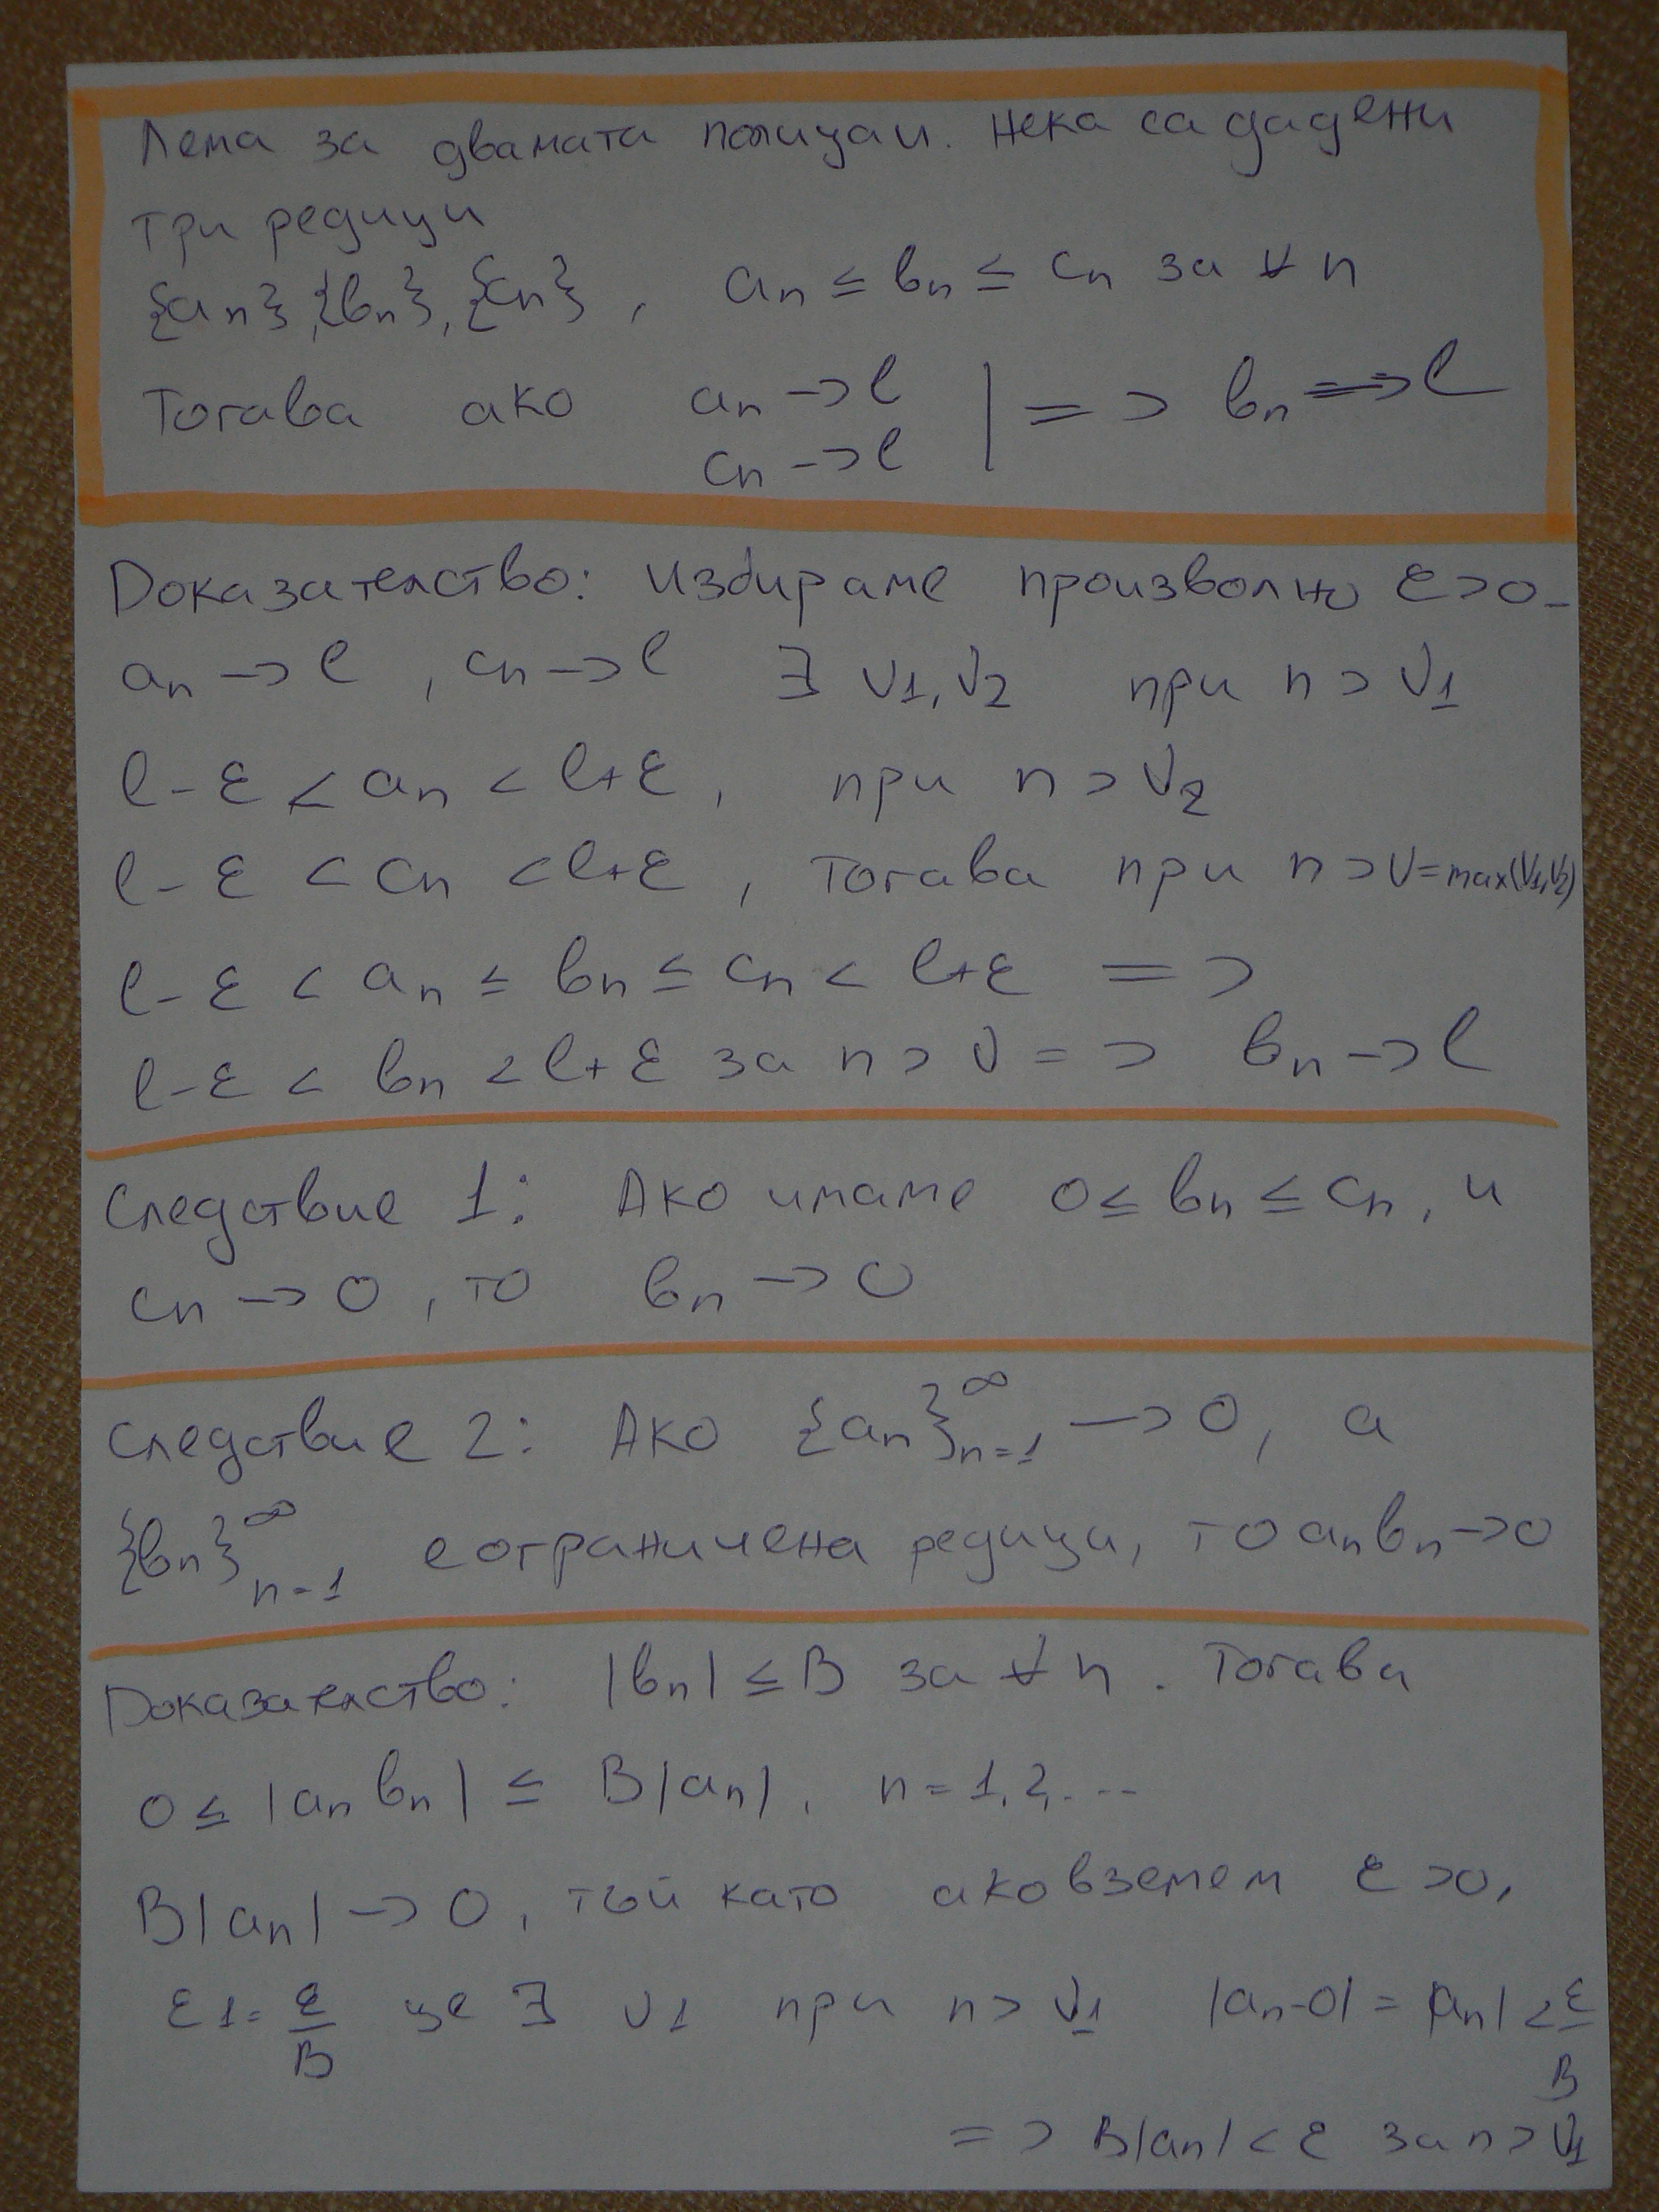 Лема за двамата полицаи. Нека са дадени
три редици
{an}, {bn}, {cn}, an ≤ bn ≤ cn за ∀ n
Тогава ако an -> l | => bn => l
cn -> l
Доказателство: Избираме произволно ε>0.
an -> l, cn -> l ∃ ν1, ν2 при n > ν1
l - ε < an < l+ε, при n > ν2
l - ε < cn < l+ε, тогава при n > ν = max(ν1,ν2)
l - ε < an ≤ bn ≤ cn < l+ε =>
l - ε < bn < l+ε за n > ν => bn -> l
Следствие 1: Ако имаме 0 ≤ bn ≤ cn, и
cn -> 0, то bn -> 0
Следствие 2: Ако {an}∞n=1 -> 0, а
{bn}∞n=1 е ограничена редици, то anbn -> 0
Доказателство: |bn| ≤ B за ∀ n. Тогава
0 ≤ |an bn| ≤ B|an|, n = 1, 2, ...
B|an| -> 0, тъй като ако вземем ε > 0,
ε1 = ε/B ще ∃ ν1 при n > ν1 |an-0| = |an| < ε/B
=> B|an| < ε за n > ν1